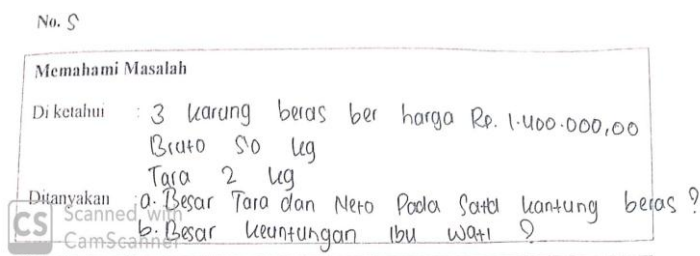 No. 5
Memahami Masalah
Di ketahui : 3 karung beras ber harga Rp. 1.400.000,00
Bruto 50 kg
Tara 2 kg
Ditanyakan : a. Besar Tara dan Neto Pada Satu kantung beras ?
b. Besar keuntungan Ibu Wati ?
CS Scanned with
CamScanner